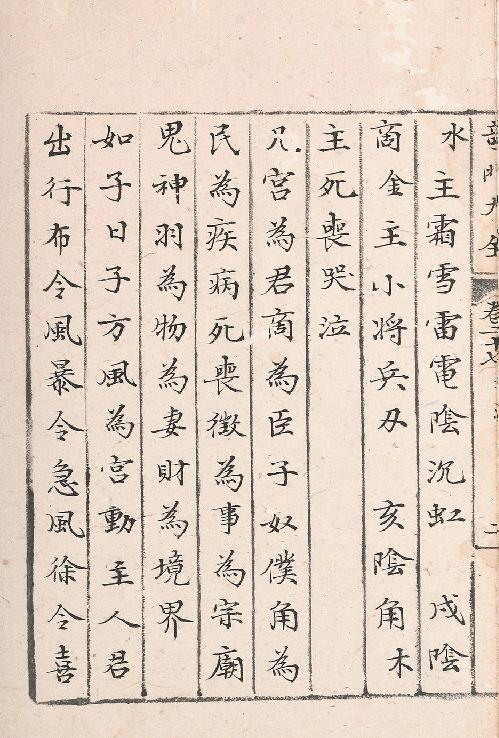 水主霜雪雷電陰沉虹　戌陰
商金主小將兵刃　亥陰角木
主死喪哭泣
凡宮為君商為臣子奴僕角為
民為疾病死喪徵為事為宗廟
鬼神羽為物為妻財為境界
如子日子方風為宮動主人君
出行布令風暴令急風徐令喜